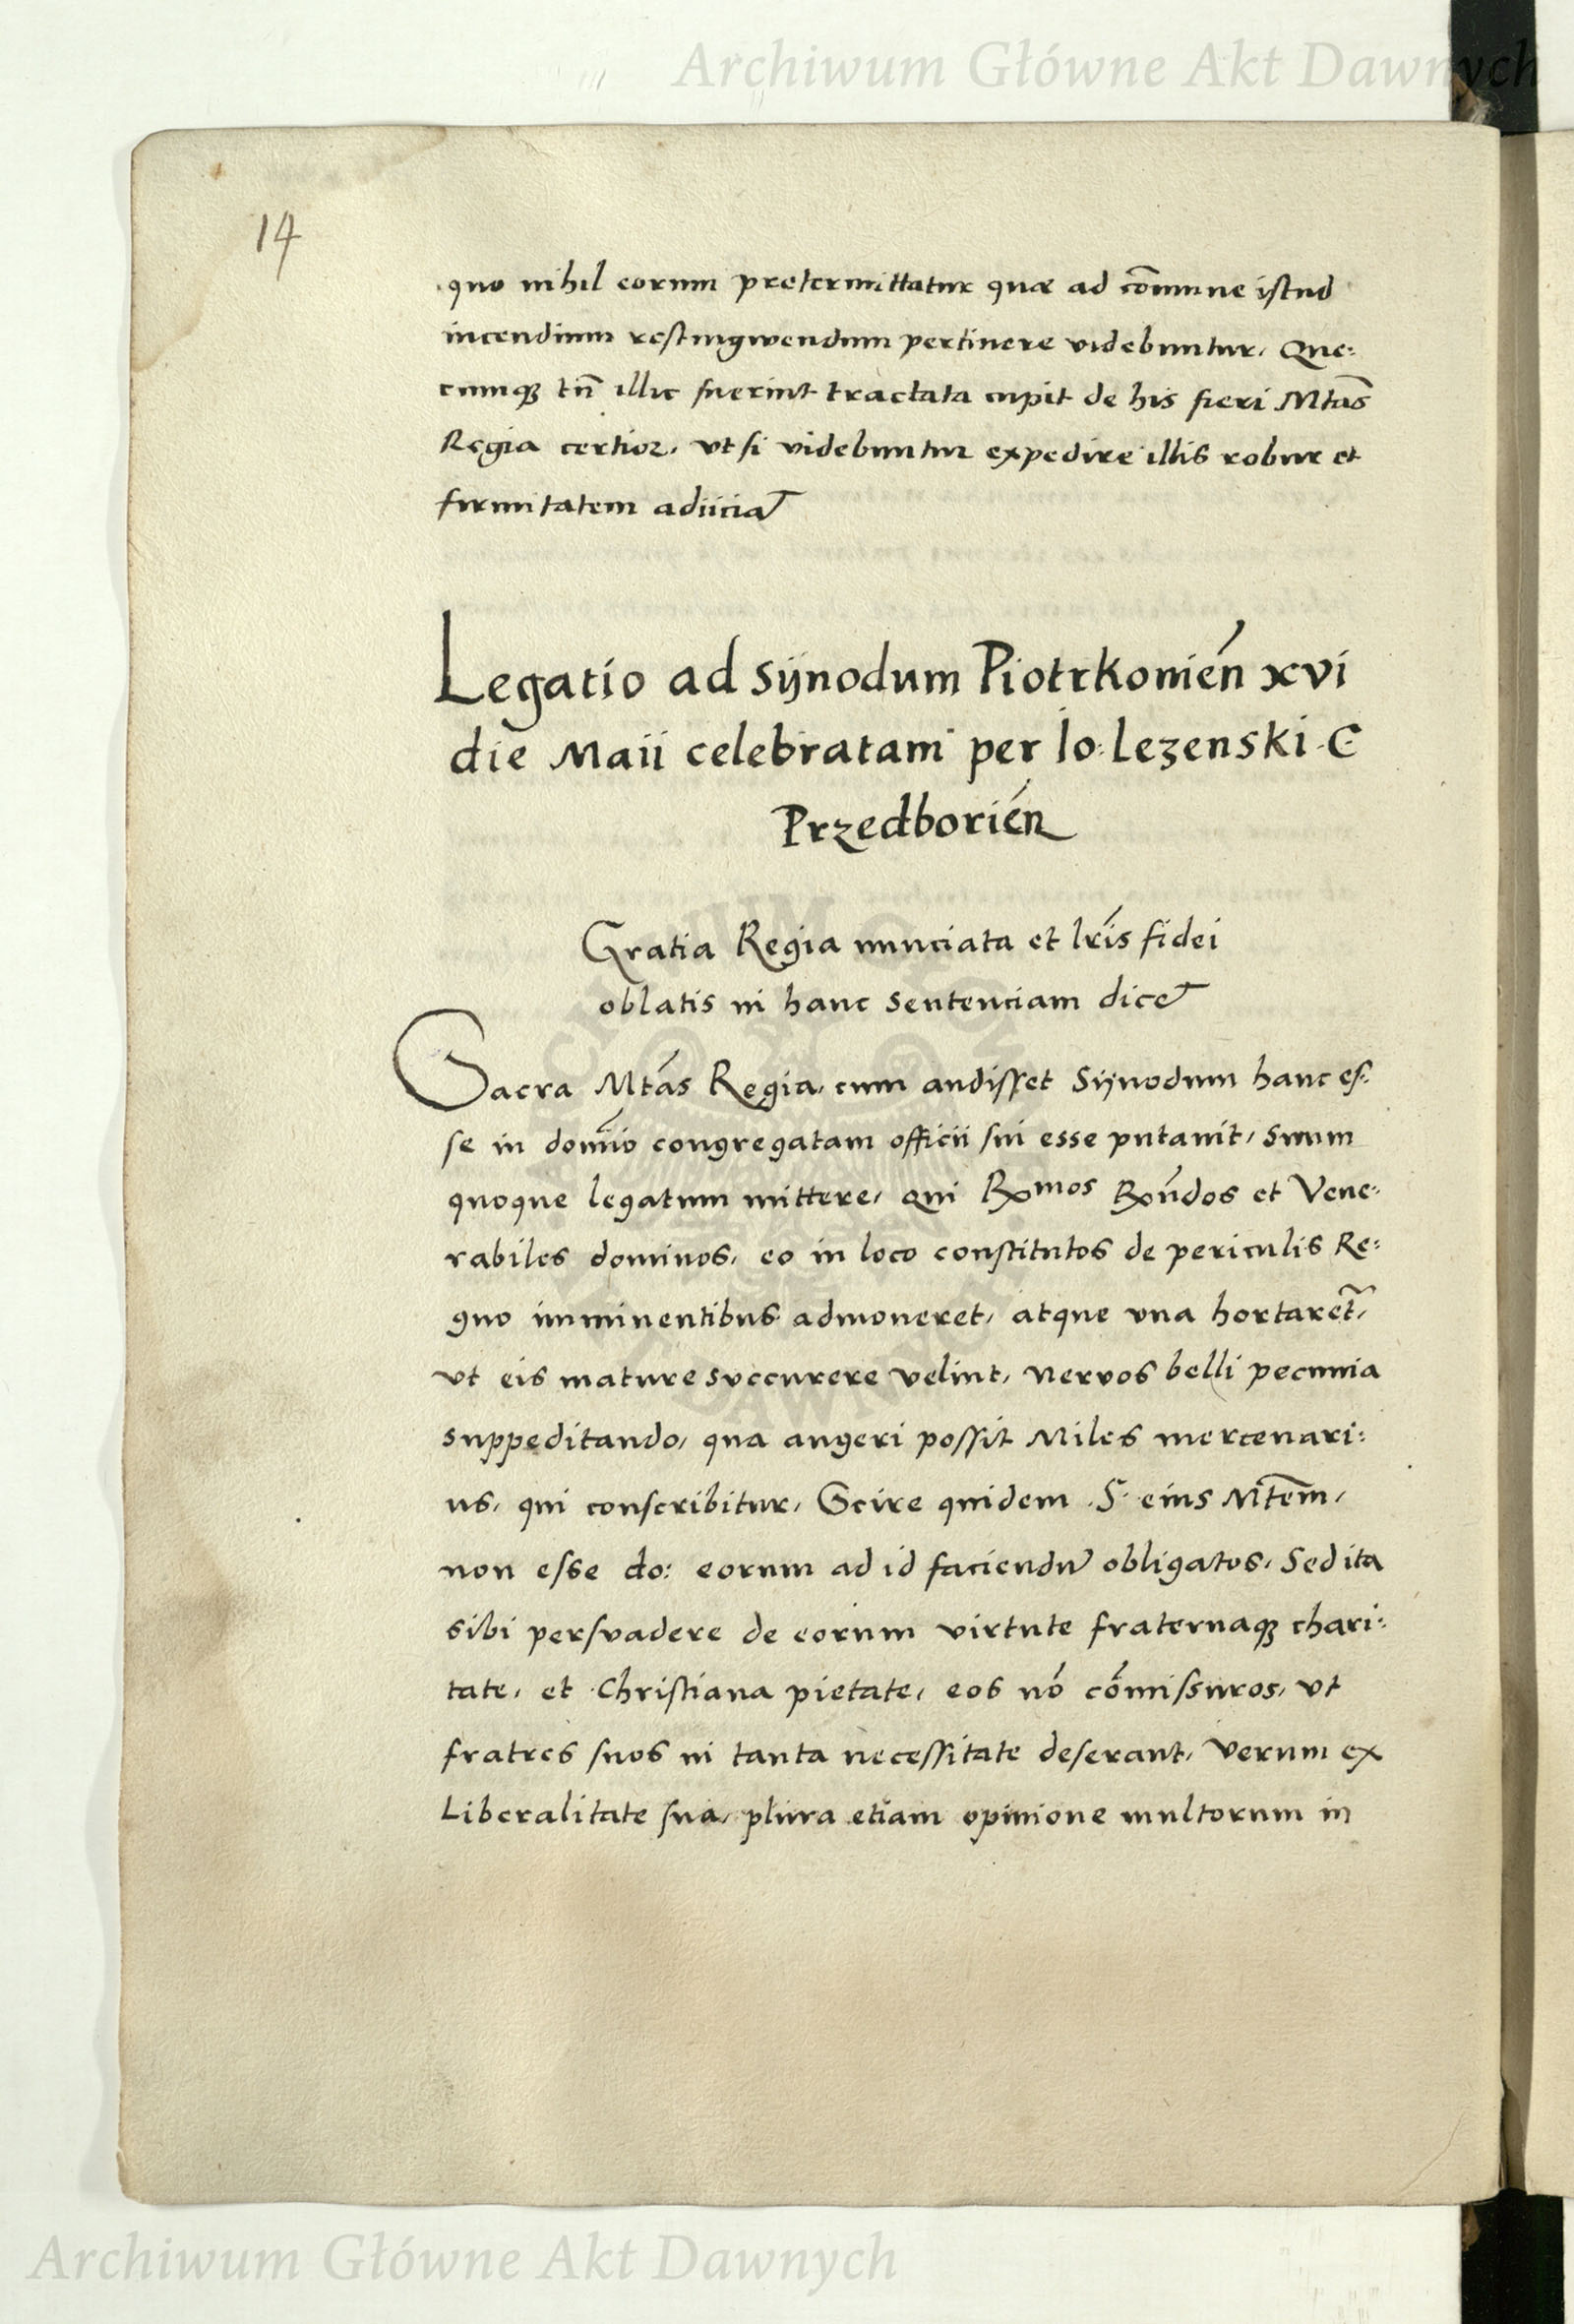 Archiwum Główne Akt Dawnych
14
quo nihil eorum pretermittatur quæ ad cōmune istud
incendium restingwendum pertinere videbuntur. Que:
cumqꝫ tn̄ illic fuerint tractata cupit de his fieri Mtas̄
Regia certior. vt si videbuntur expedire illis robur et
firmitatem adiiciat
Legatio ad Sijnodum Piotrkouień xvi
die Maii celebratam per Io: Lezenski C
Przedborień
Gratia Regia nunciata et lrís fidei
oblatis in hanc sentenciam dicet
Sacra Mtás Regia, cum audisset Sijnodum hanc es:
se in domīo congregatam officii sui esse putauit, suum
quoque legatum mittere, qui Rxmos Rxńdos et Vene:
rabiles dominos, eo in loco constitutos de periculis Re:
gno imminentibus admoneret, atque vna hortaret̃,
vt eis mature svccurere velint, nervos belli pecunia
suppeditando, qua augeri possit Miles mercenari:
us, qui conscribitur, Scire quidem S. eius Mtem̄,
non esse do: eorum ad id faciendū obligatos, Sed ita
sibi persvadere de eorum virtute fraternaqꝫ chari:
tate, et Christiana pietate, eos nó cómissuros, vt
fratres suos in tanta necessitate deserant, Verum ex
Liberalitate sua, plura etiam opinione multorum in
Archiwum Główne Akt Dawnych